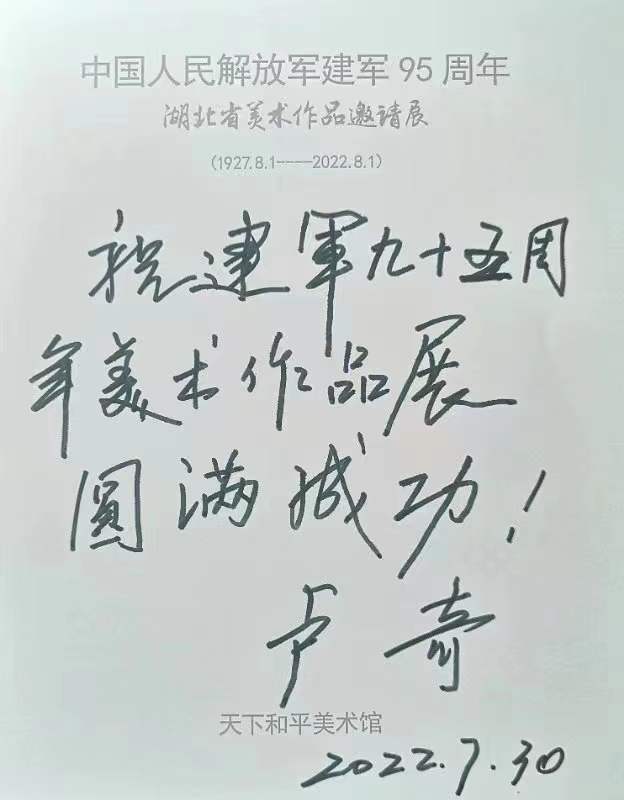 中国人民解放军建军 95 周年
湖北省美术作品邀请展
(1927.8.1----2022.8.1)
祝建軍九十五周
年美术作品展
圓满成功!
卢奇
天下和平美术馆
2022.7.30